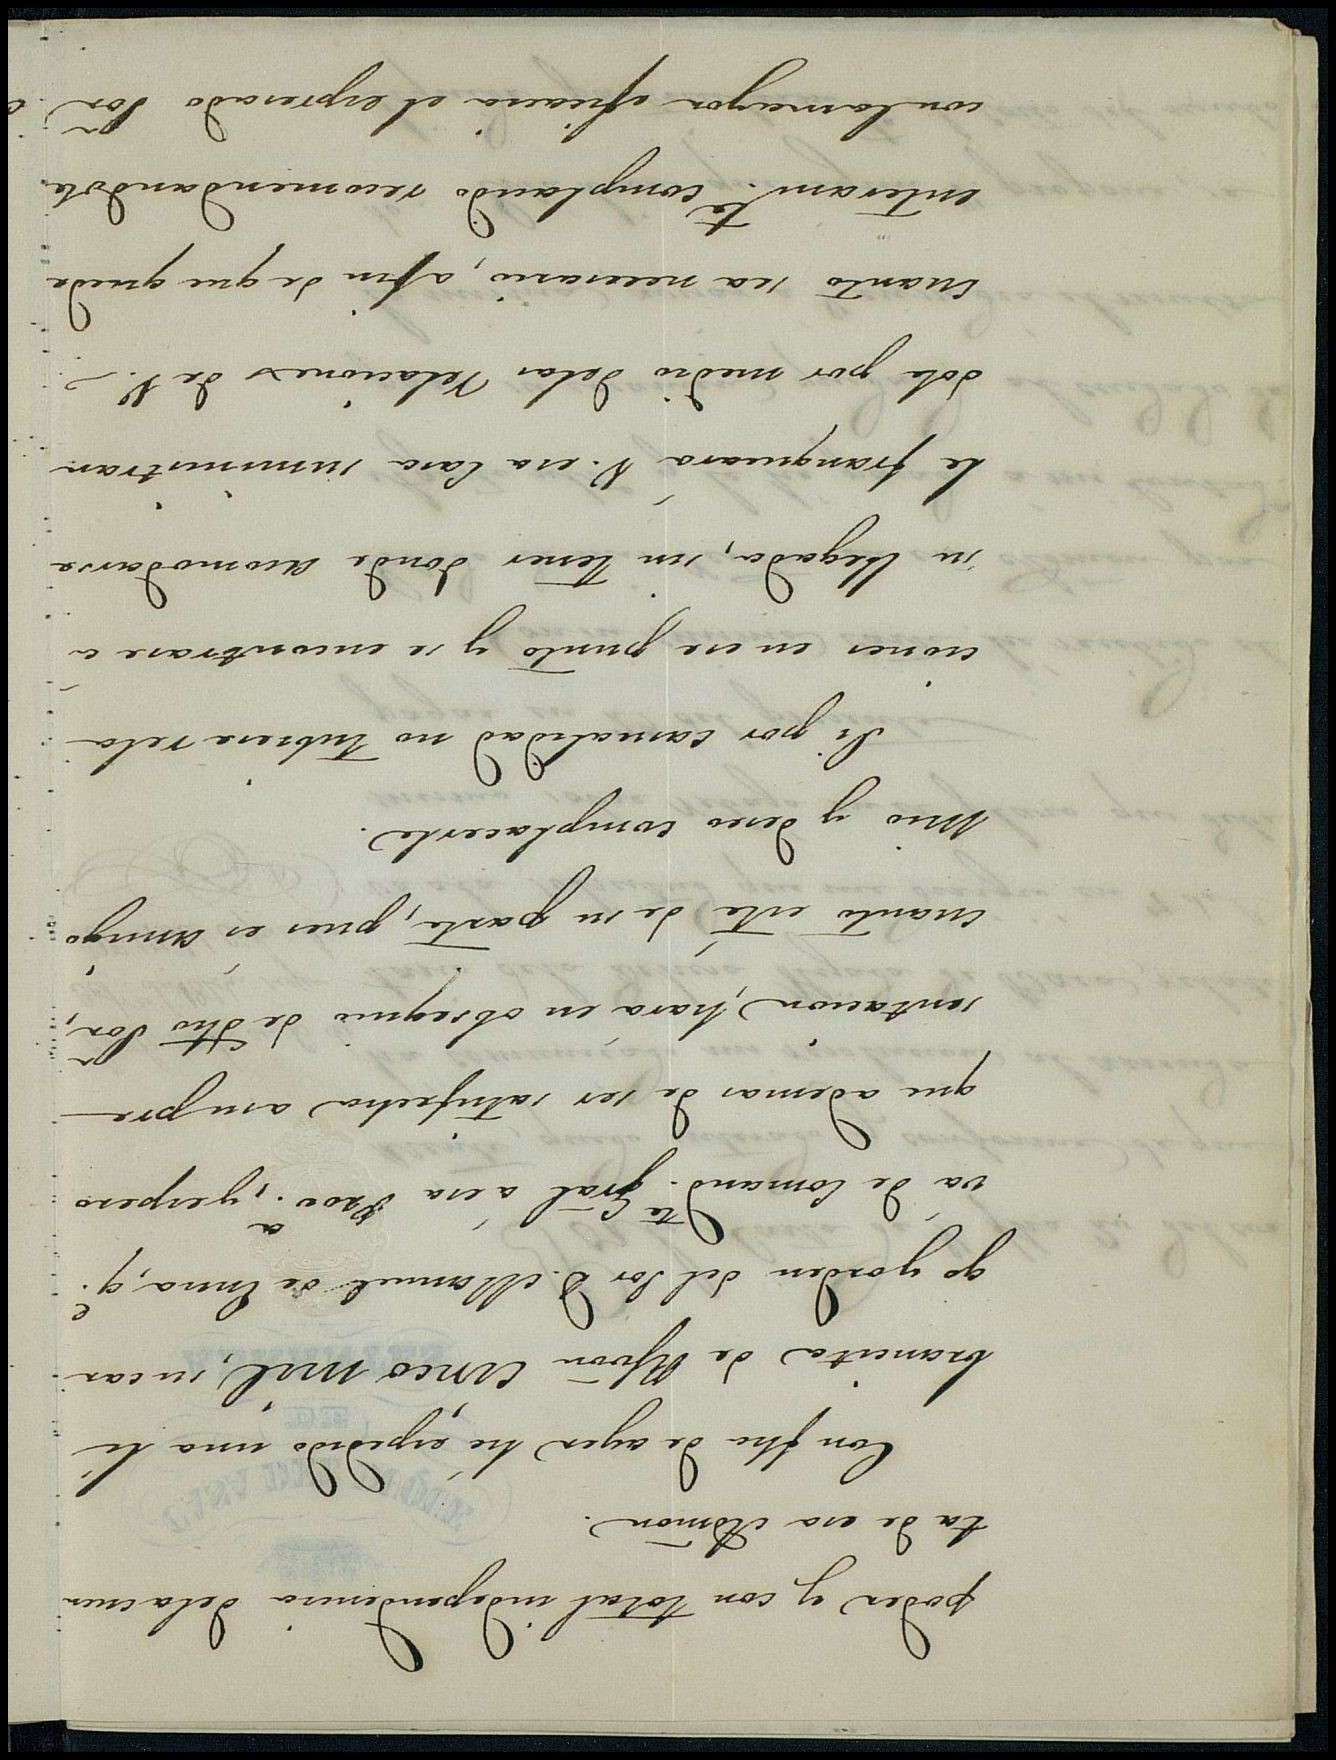 poder y con total independencia dela cuen
ta de esa Admon.
Con fha de ayer hé expedido una li
bramienta de Rvon Cinco mil, su car
go y orden del Sor D. Manuel de Enna, q.e
vá de Comand.te Gral á esa Prov.a, y espero
que ademas de ser satisfecha asu pre
sentacion, hará en obsequio de dho Sor,
cuanto esté de su parte, pues es amigo
mio y deseo complacerle.
Si por casualidad no tubiese rela
ciones en ese punto y se encontrase a
su llegada, sin tener donde acomodarse
le franqueará V. esa Casa suministran
dole por medio delas relaciones de V.
cuanto sea necesario, afin de que quede
enteram.te complacido recomendandole
con la mayor eficacia el expresado Sor